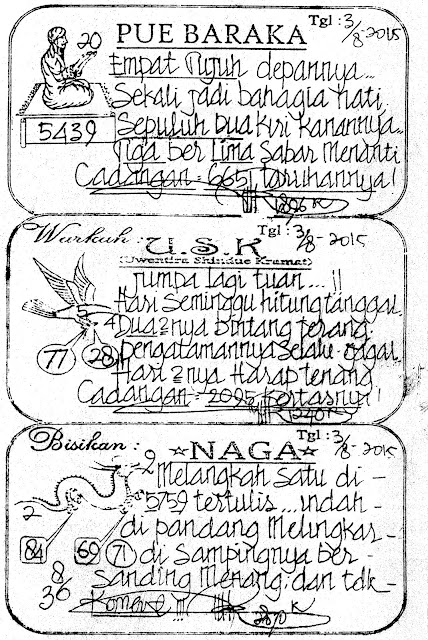 Tgl : 3/8-2015
20
PUE BARAKA
Empat Tujuh depannya...
Sekali jadi bahagia hati
5439
Sepuluh Dua Kiri Kanannya..
Tiga ber Lima Sabar Menanti
Cadangan = 6651 taruhannya!
Wurkah :
U.S.K
Tgl : 3/8-2015
(Uwentira Skindue Kramat)
jumpa lagi tuan...!!
Hari Seminggu hitung tanggal.
4
Dua2nya bintang terang.
77
28
pengatamannya Selalu gagal.
Hari2nya Harap tenang
Cadangan = 2095 Kertasnya!
1240 K
Bisikan :
NAGA
Tgl : 3/8-2015
2
Melangkah Satu di -
5759 tertulis...indah -
2
di pandang Melingkar -
84
69
71
di Sampingnya ber -
8
Sanding Menang dan tdk -
36
Komene !!!
2870 K